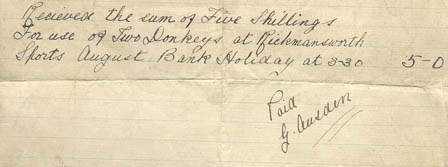 Recieved the sum of Five Shillings
For use of Two Donkeys at Rickmansworth
Sports August Bank Holiday at 3-30 5-0
Paid
G. Ausden